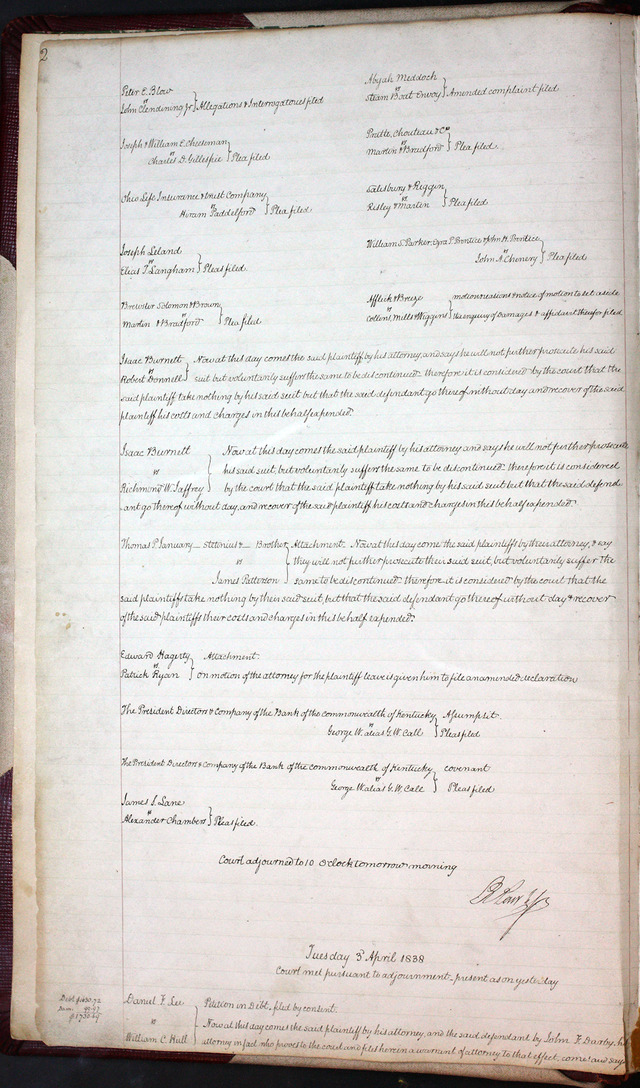 2
Peter E. Blow
vs
John Clendining Jr } Allegations & Interrogatories filed
Joseph & William E. Cheeseman
vs
Charles D. Gillespie } Plea filed
Ohio Life Insurance & trust Company
vs
Hiram Faddelford } Plea filed
Joseph Leland
vs
Elias T. Langham } Pleas filed.
Brewster Solomon & Brown
vs
Martin & Bradford } Plea filed
Abijah Meddoch
vs
Steam Boat Envoy } Amended complaint filed
Pratte, Chouteau & Co
vs
Martin & Bradford } Plea filed.
Salesbury & Riggin
vs
Risley & Martin } Plea filed
William S. Parker, Ezra P. Prentice & John H. Prentice
vs
John A. Chenery } Plea filed
Afflick & Breeze } motion reasons & notice of motion to set aside
vs
Collins, Mills & Wiggins } the enquiry of damages & affidavit therefor filed
Isaac Burnett } Now at this day comes the said plaintiff by his attorney, and says he will not further prosecute his said
vs
Robert Donnell } suit but voluntarily suffer the same to be discontinued. therefore it is considered by the court that the
said plaintiff take nothing by his said suit but that the said defendant go thereof without day and recover of the said
plaintiff his costs and charges in this behalf expended.
Isaac Burnett } Now at this day comes the said plaintiff by his attorney and says he will not further prosecute
vs } his said suit, but voluntarily suffer the same to be discontinued. therefore it is considered
Richmond W. Jaffrey } by the court that the said plaintiff take nothing by his said suit but that the said defend
ant go thereof without day, and recover of the said plaintiff his costs and charges in this behalf expended.
Thomas P. January — Stetinius & — Brother } Attachment. Now at this day come the said plaintiffs by their attorney, & say
vs } they will not further prosecute their said suit, but voluntarily suffer the
James Patterson } same to be discontinued. therefore it is considered by the court that the
said plaintiffs take nothing by their said suit, but that the said defendant go thereof without day & recover
of the said plaintiffs their costs and charges in this behalf expended.
Edward Hagerty } Attachment.
vs
Patrick Ryan } on motion of the attorney for the plaintiff leave is given him to file an amended declaration
The President Directors & Company of the Bank of the commonwealth of Kentucky } Assumpsit.
vs
George W. alias G. W. Call } Pleas filed
The President Directors & Company of the Bank of the commonwealth of Kentucky } covenant
vs
George W. alias G. W. Call } Pleas filed
James S. Lane
vs
Alexander Chambers } Pleas filed.
Court adjourned to 10 O'clock tomorrow morning
Tuesday 3d April 1838
Court met pursuant to adjournment – present as on yesterday
Daniel F. Lee } Petition in Debt – filed by consent.
vs } Now at this day comes the said plaintiff by his attorney, and the said defendant by John F. Darby his
William C. Hull } attorney in fact who proves to the court and files herein a warrant of attorney to that effect, come! and says